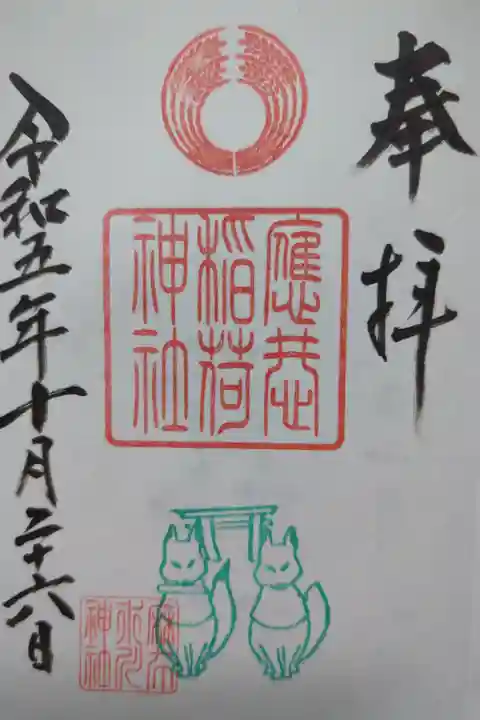 奉拝
應恭
稲荷
神社
令和五年十月二十六日
神社